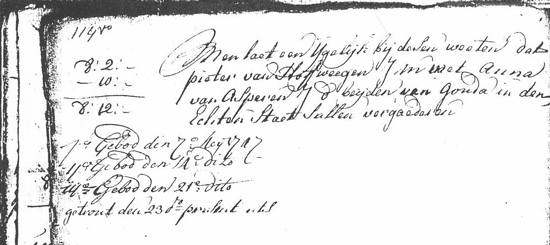 114vo
Men laet een Ijgelijk bij desen weeten dat
8:2:-
pieter van Hoffweegen J m met Anna
-10:-
van Asperen J d beijden van Gouda in den
8:12:-
Echten Staet Sullen vergaederen
1e Gebod den 7e Meij 1747
Gebod den 14e dito
Gebod den 21e dito
getrout den 23 de present